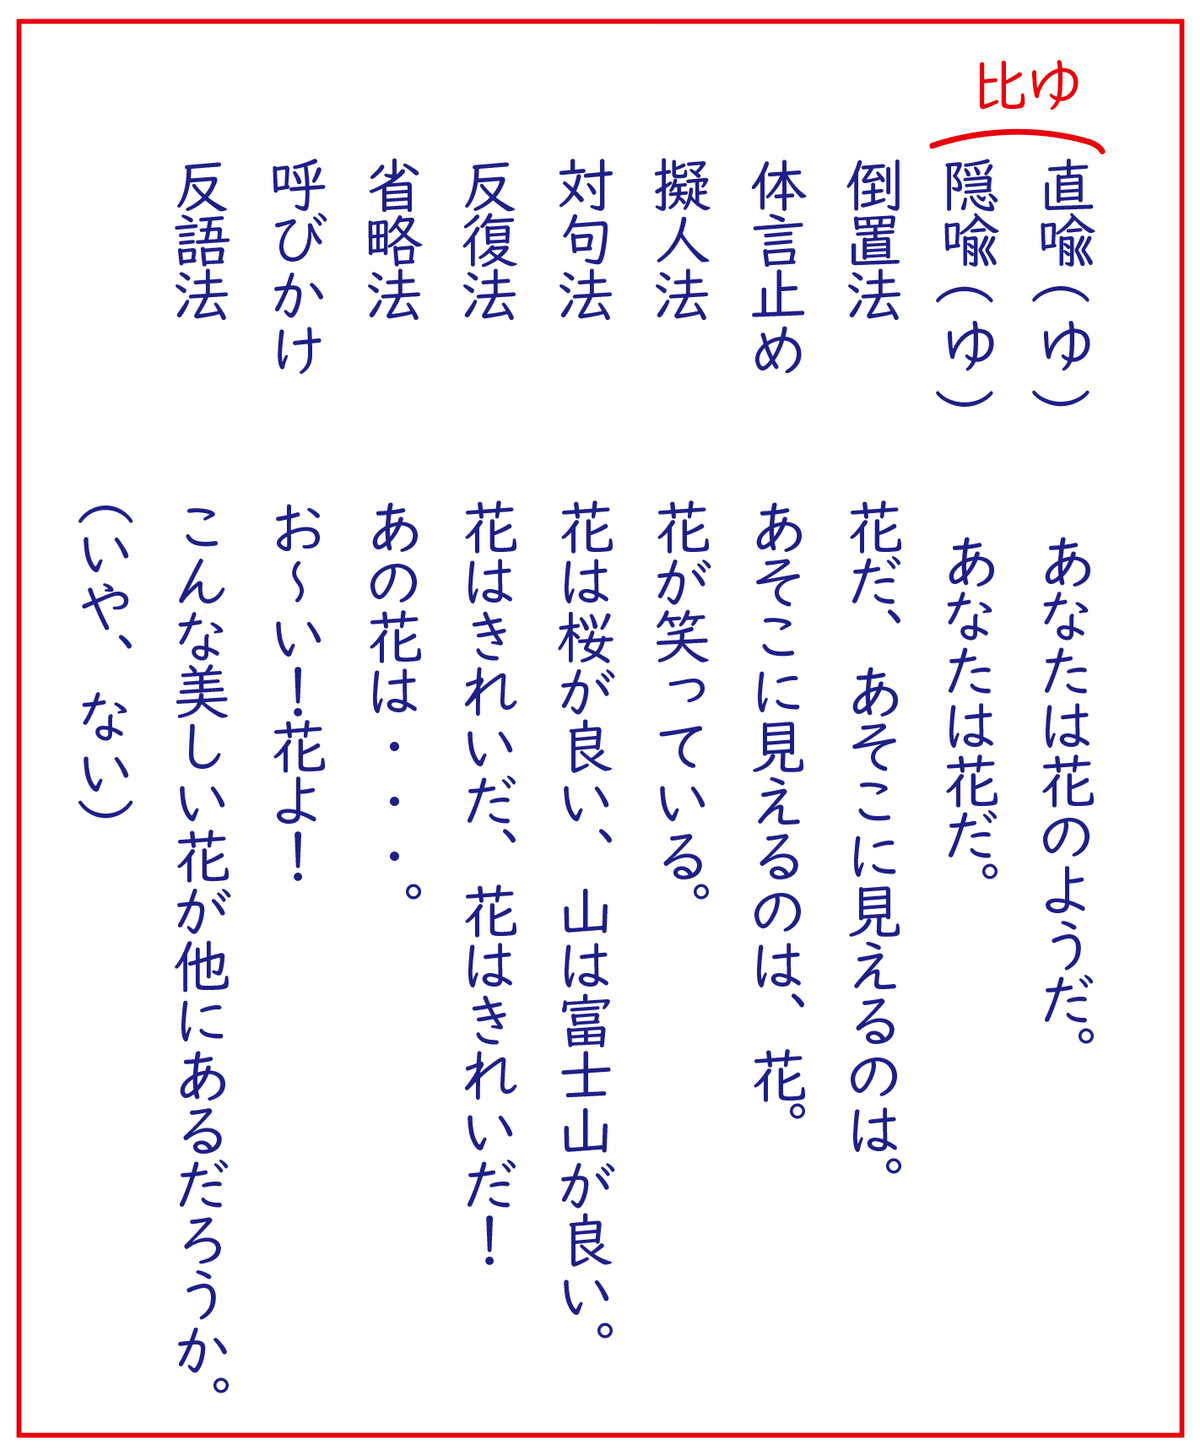 比ゆ
直喩（ゆ）　あなたは花のようだ。
隠喩（ゆ）　あなたは花だ。
倒置法　花だ、あそこに見えるのは。
体言止め　あそこに見えるのは、花。
擬人法　花が笑っている。
対句法　花は桜が良い、山は富士山が良い。
反復法　花はきれいだ、花はきれいだ！
省略法　あの花は・・・。
呼びかけ　お〜い！花よ！
反語法　こんな美しい花が他にあるだろうか。
（いや、ない）